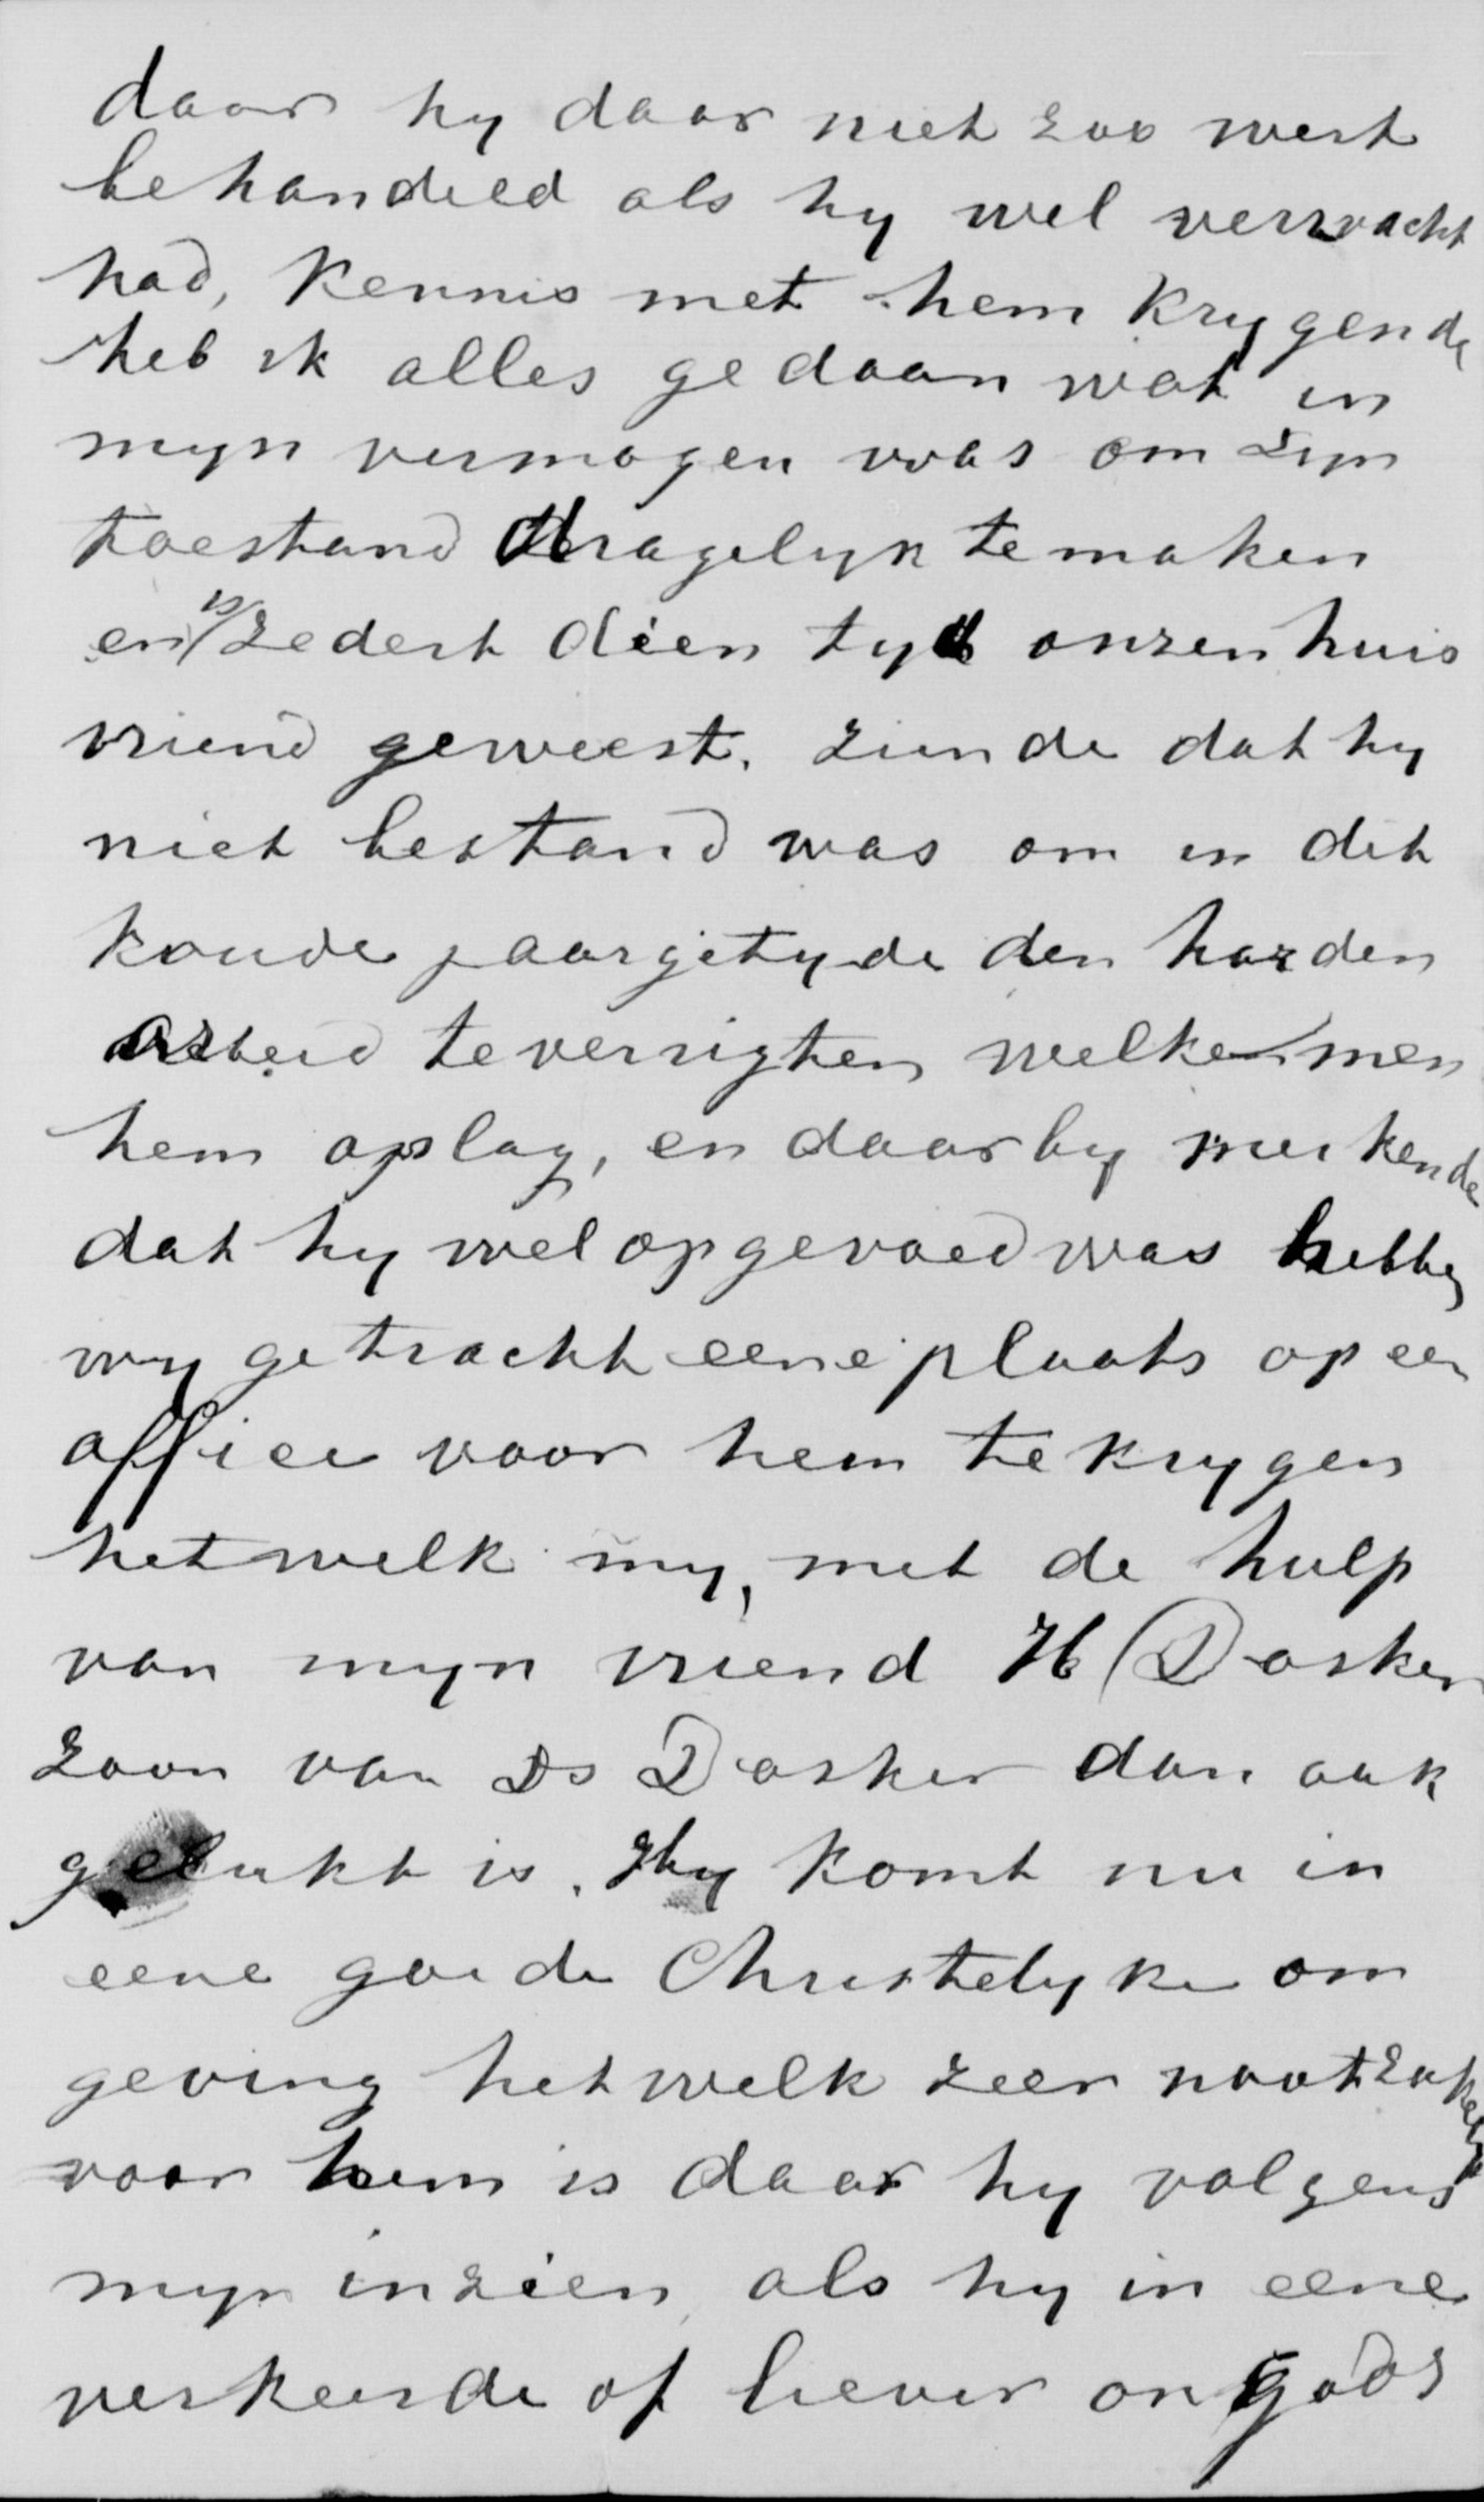 daar hy daar niet zoo wert
behandeld als hy wel verwacht
had, Kennis met hem Krygende
heb ik alles gedaan wat in
myn vermogen was om zyn
toestand dragelyk te maken
en is zedert dien tyd onzen huis
vriend geweest. ziende dat hy
niet bestand was om in dit
koude jaargetyde den harden
arbeid te verrigten welke men
hem oplag, en daarby merkende
dat hy wel opgevoed was hebben
wy getracht eene plaats op een
office voor hem te krygen
hetwelk my, met de hulp
van myn vriend H Dosker
zoon van Ds Dosker dan ook
gelukt is. Hy komt nu in
eene goede Christelyke om
geving hetwelk zeer nootzakelyk
voor hem is daar hy volgens
myn inzien als hy in eene
verkeerde of liever on gods